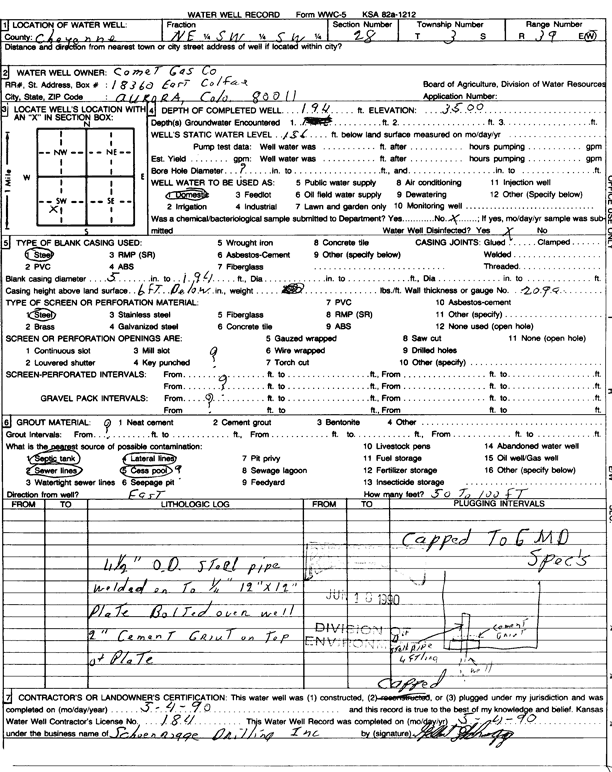 WATER WELL RECORD Form WWC-5 KSA 82a-1212
1 LOCATION OF WATER WELL: Fraction Section Number Township Number Range Number
County: Cheyenne NE ¼ SW ¼ SW ¼ 28 T 3 S R 39 E/W
Distance and direction from nearest town or city street address of well if located within city?
2 WATER WELL OWNER: Comet Gas Co
RR#, St. Address, Box # : 18360 East Colfax Board of Agriculture, Division of Water Resources
City, State, ZIP Code : AURORA, Colo 80011 Application Number:
3 LOCATE WELL'S LOCATION WITH AN "X" IN SECTION BOX:
N
NW NE
W E
SW SE
X
S
1 Mile
4 DEPTH OF COMPLETED WELL 194 ft. ELEVATION: 3500
Depth(s) Groundwater Encountered 1. ft. 2. ft. 3. ft.
WELL'S STATIC WATER LEVEL 156 ft. below land surface measured on mo/day/yr
Pump test data: Well water was ft. after hours pumping gpm
Est. Yield gpm: Well water was ft. after hours pumping gpm
Bore Hole Diameter ? in. to ft., and in. to ft.
WELL WATER TO BE USED AS: 5 Public water supply 8 Air conditioning 11 Injection well
1 Domestic 3 Feedlot 6 Oil field water supply 9 Dewatering 12 Other (Specify below)
2 Irrigation 4 Industrial 7 Lawn and garden only 10 Monitoring well
Was a chemical/bacteriological sample submitted to Department? Yes No X ; If yes, mo/day/yr sample was sub-
mitted Water Well Disinfected? Yes X No
5 TYPE OF BLANK CASING USED: 5 Wrought iron 8 Concrete tile CASING JOINTS: Glued Clamped
1 Steel 3 RMP (SR) 6 Asbestos-Cement 9 Other (specify below) Welded
2 PVC 4 ABS 7 Fiberglass Threaded
Blank casing diameter 5 in. to 194 ft., Dia in. to ft., Dia in. to ft.
Casing height above land surface 6 FT Below in., weight lbs./ft. Wall thickness or gauge No. 2099
TYPE OF SCREEN OR PERFORATION MATERIAL: 7 PVC 10 Asbestos-cement
1 Steel 3 Stainless steel 5 Fiberglass 8 RMP (SR) 11 Other (specify)
2 Brass 4 Galvanized steel 6 Concrete tile 9 ABS 12 None used (open hole)
SCREEN OR PERFORATION OPENINGS ARE: 5 Gauzed wrapped 8 Saw cut 11 None (open hole)
1 Continuous slot 3 Mill slot ? 6 Wire wrapped 9 Drilled holes
2 Louvered shutter 4 Key punched 7 Torch cut 10 Other (specify)
SCREEN-PERFORATED INTERVALS: From ? ft. to ft., From ft. to ft.
From ft. to ft., From ft. to ft.
GRAVEL PACK INTERVALS: From ? ft. to ft., From ft. to ft.
From ft. to ft., From ft. to ft.
6 GROUT MATERIAL: ? 1 Neat cement 2 Cement grout 3 Bentonite 4 Other
Grout Intervals: From ft. to ft., From ft. to ft., From ft. to ft.
What is the nearest source of possible contamination: 10 Livestock pens 14 Abandoned water well
1 Septic tank 4 Lateral lines 7 Pit privy 11 Fuel storage 15 Oil well/Gas well
2 Sewer lines 5 Cess pool ? 8 Sewage lagoon 12 Fertilizer storage 16 Other (specify below)
3 Watertight sewer lines 6 Seepage pit 9 Feedyard 13 Insecticide storage
Direction from well? East How many feet? 50 To 100 FT
FROM TO LITHOLOGIC LOG FROM TO PLUGGING INTERVALS
Capped To GMD
Spec's
4½" O.D. Steel pipe
welded on To ¼" 12" X 12"
Plate Bolted over well
2" Cement Grout on Top
of Plate
JUN 18 1990
DIVISION OF
ENVIRONMENT
cement
Grout
steel pipe
4 FT long
well
Capped
7 CONTRACTOR'S OR LANDOWNER'S CERTIFICATION: This water well was (1) constructed, (2) reconstructed, or (3) plugged under my jurisdiction and was
completed on (mo/day/year) 5-4-90 and this record is true to the best of my knowledge and belief. Kansas
Water Well Contractor's License No. 184 This Water Well Record was completed on (mo/day/yr) 5-4-90
under the business name of Schoenrogge Drilling Inc by (signature)
OFFICE USE ONLY